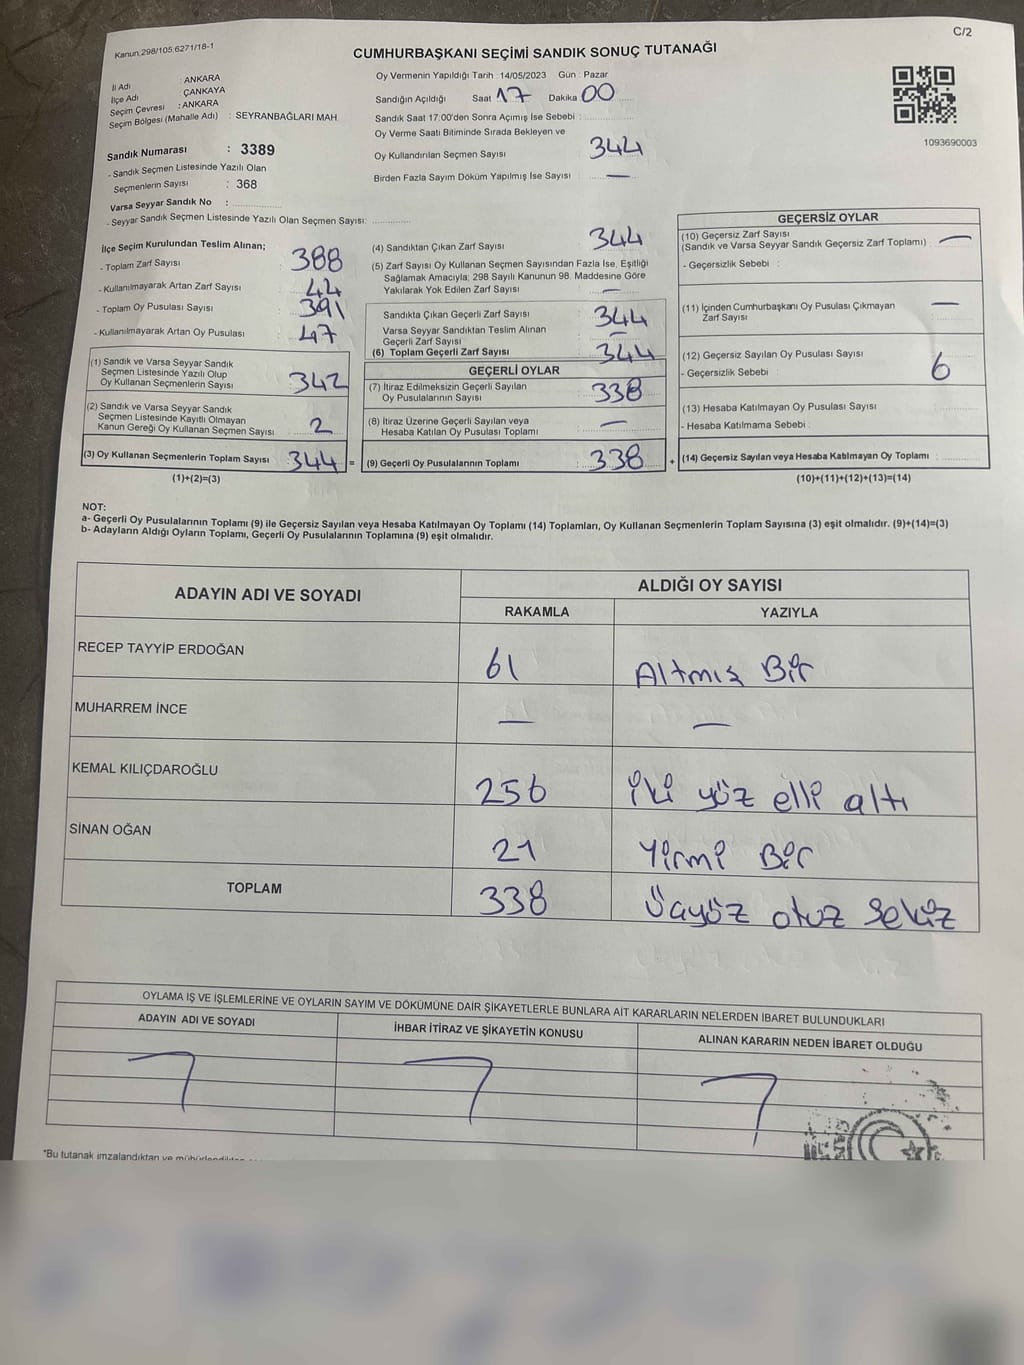 Kanun:298/105,6271/18-1
C/2
CUMHURBAŞKANI SEÇİMİ SANDIK SONUÇ TUTANAĞI
İl Adı : ANKARA
İlçe Adı ÇANKAYA
Seçim Çevresi : ANKARA
Seçim Bölgesi (Mahalle Adı) : SEYRANBAĞLARI MAH
Sandık Numarası : 3389
- Sandık Seçmen Listesinde Yazılı Olan
Seçmenlerin Sayısı : 368
Varsa Seyyar Sandık No :
- Seyyar Sandık Seçmen Listesinde Yazılı Olan Seçmen Sayısı:
Oy Vermenin Yapıldığı Tarih : 14/05/2023 Gün : Pazar
Sandığın Açıldığı Saat 17 Dakika 00
Sandık Saat 17:00'den Sonra Açımış İse Sebebi :
Oy Verme Saati Bitiminde Sırada Bekleyen ve
Oy Kullandırılan Seçmen Sayısı : 344
Birden Fazla Sayım Döküm Yapılmış İse Sayısı : —
1093690003
İlçe Seçim Kurulundan Teslim Alınan;
- Toplam Zarf Sayısı 388
- Kullanılmayarak Artan Zarf Sayısı : 44
- Toplam Oy Pusulası Sayısı : 391
- Kullanılmayarak Artan Oy Pusulası : 47
(1) Sandık ve Varsa Seyyar Sandık
Seçmen Listesinde Yazılı Olup
Oy Kullanan Seçmenlerin Sayısı : 342
(2) Sandık ve Varsa Seyyar Sandık
Seçmen Listesinde Kayıtlı Olmayan
Kanun Gereği Oy Kullanan Seçmen Sayısı : 2
(3) Oy Kullanan Seçmenlerin Toplam Sayısı : 344 =
(1)+(2)=(3)
(4) Sandıktan Çıkan Zarf Sayısı : 344
(5) Zarf Sayısı Oy Kullanan Seçmen Sayısından Fazla İse, Eşitliği
Sağlamak Amacıyla; 298 Sayılı Kanunun 98. Maddesine Göre
Yakılarak Yok Edilen Zarf Sayısı : —
Sandıkta Çıkan Geçerli Zarf Sayısı : 344
Varsa Seyyar Sandıktan Teslim Alınan
Geçerli Zarf Sayısı : —
(6) Toplam Geçerli Zarf Sayısı : 344
GEÇERLİ OYLAR
(7) İtiraz Edilmeksizin Geçerli Sayılan
Oy Pusulalarının Sayısı : 338
(8) İtiraz Üzerine Geçerli Sayılan veya
Hesaba Katılan Oy Pusulası Toplamı : —
(9) Geçerli Oy Pusulalarının Toplamı : 338 +
GEÇERSİZ OYLAR
(10) Geçersiz Zarf Sayısı
(Sandık ve Varsa Seyyar Sandık Geçersiz Zarf Toplamı) : —
- Geçersizlik Sebebi :
(11) İçinden Cumhurbaşkanı Oy Pusulası Çıkmayan
Zarf Sayısı : —
(12) Geçersiz Sayılan Oy Pusulası Sayısı : 6
- Geçersizlik Sebebi :
(13) Hesaba Katılmayan Oy Pusulası Sayısı :
- Hesaba Katılmama Sebebi :
(14) Geçersiz Sayılan veya Hesaba Katılmayan Oy Toplamı :
(10)+(11)+(12)+(13)=(14)
NOT:
a- Geçerli Oy Pusulalarının Toplamı (9) ile Geçersiz Sayılan veya Hesaba Katılmayan Oy Toplamı (14) Toplamları, Oy Kullanan Seçmenlerin Toplam Sayısına (3) eşit olmalıdır. (9)+(14)=(3)
b- Adayların Aldığı Oyların Toplamı, Geçerli Oy Pusulalarının Toplamına (9) eşit olmalıdır.
ADAYIN ADI VE SOYADI ALDIĞI OY SAYISI
RAKAMLA YAZIYLA
RECEP TAYYİP ERDOĞAN 61 Altmış Bir
MUHARREM İNCE — —
KEMAL KILIÇDAROĞLU 256 iki yüz elli altı
SİNAN OĞAN 21 Yirmi Bir
TOPLAM 338 Üçyüz otuz Sekiz
OYLAMA İŞ VE İŞLEMLERİNE VE OYLARIN SAYIM VE DÖKÜMÜNE DAİR ŞİKAYETLERLE BUNLARA AİT KARARLARIN NELERDEN İBARET BULUNDUKLARI
ADAYIN ADI VE SOYADI İHBAR İTİRAZ VE ŞİKAYETİN KONUSU ALINAN KARARIN NEDEN İBARET OLDUĞU
*Bu tutanak imzalandıktan ve